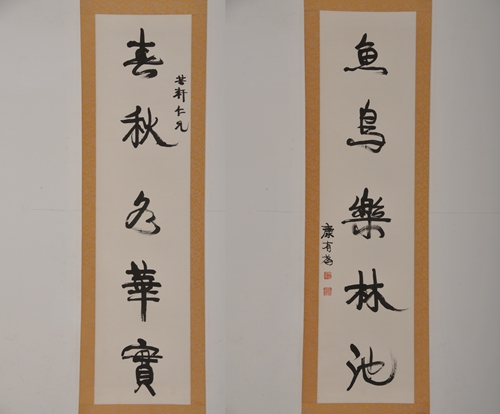 春秋多華實
軒仁兄
魚鳥樂林池
康有為